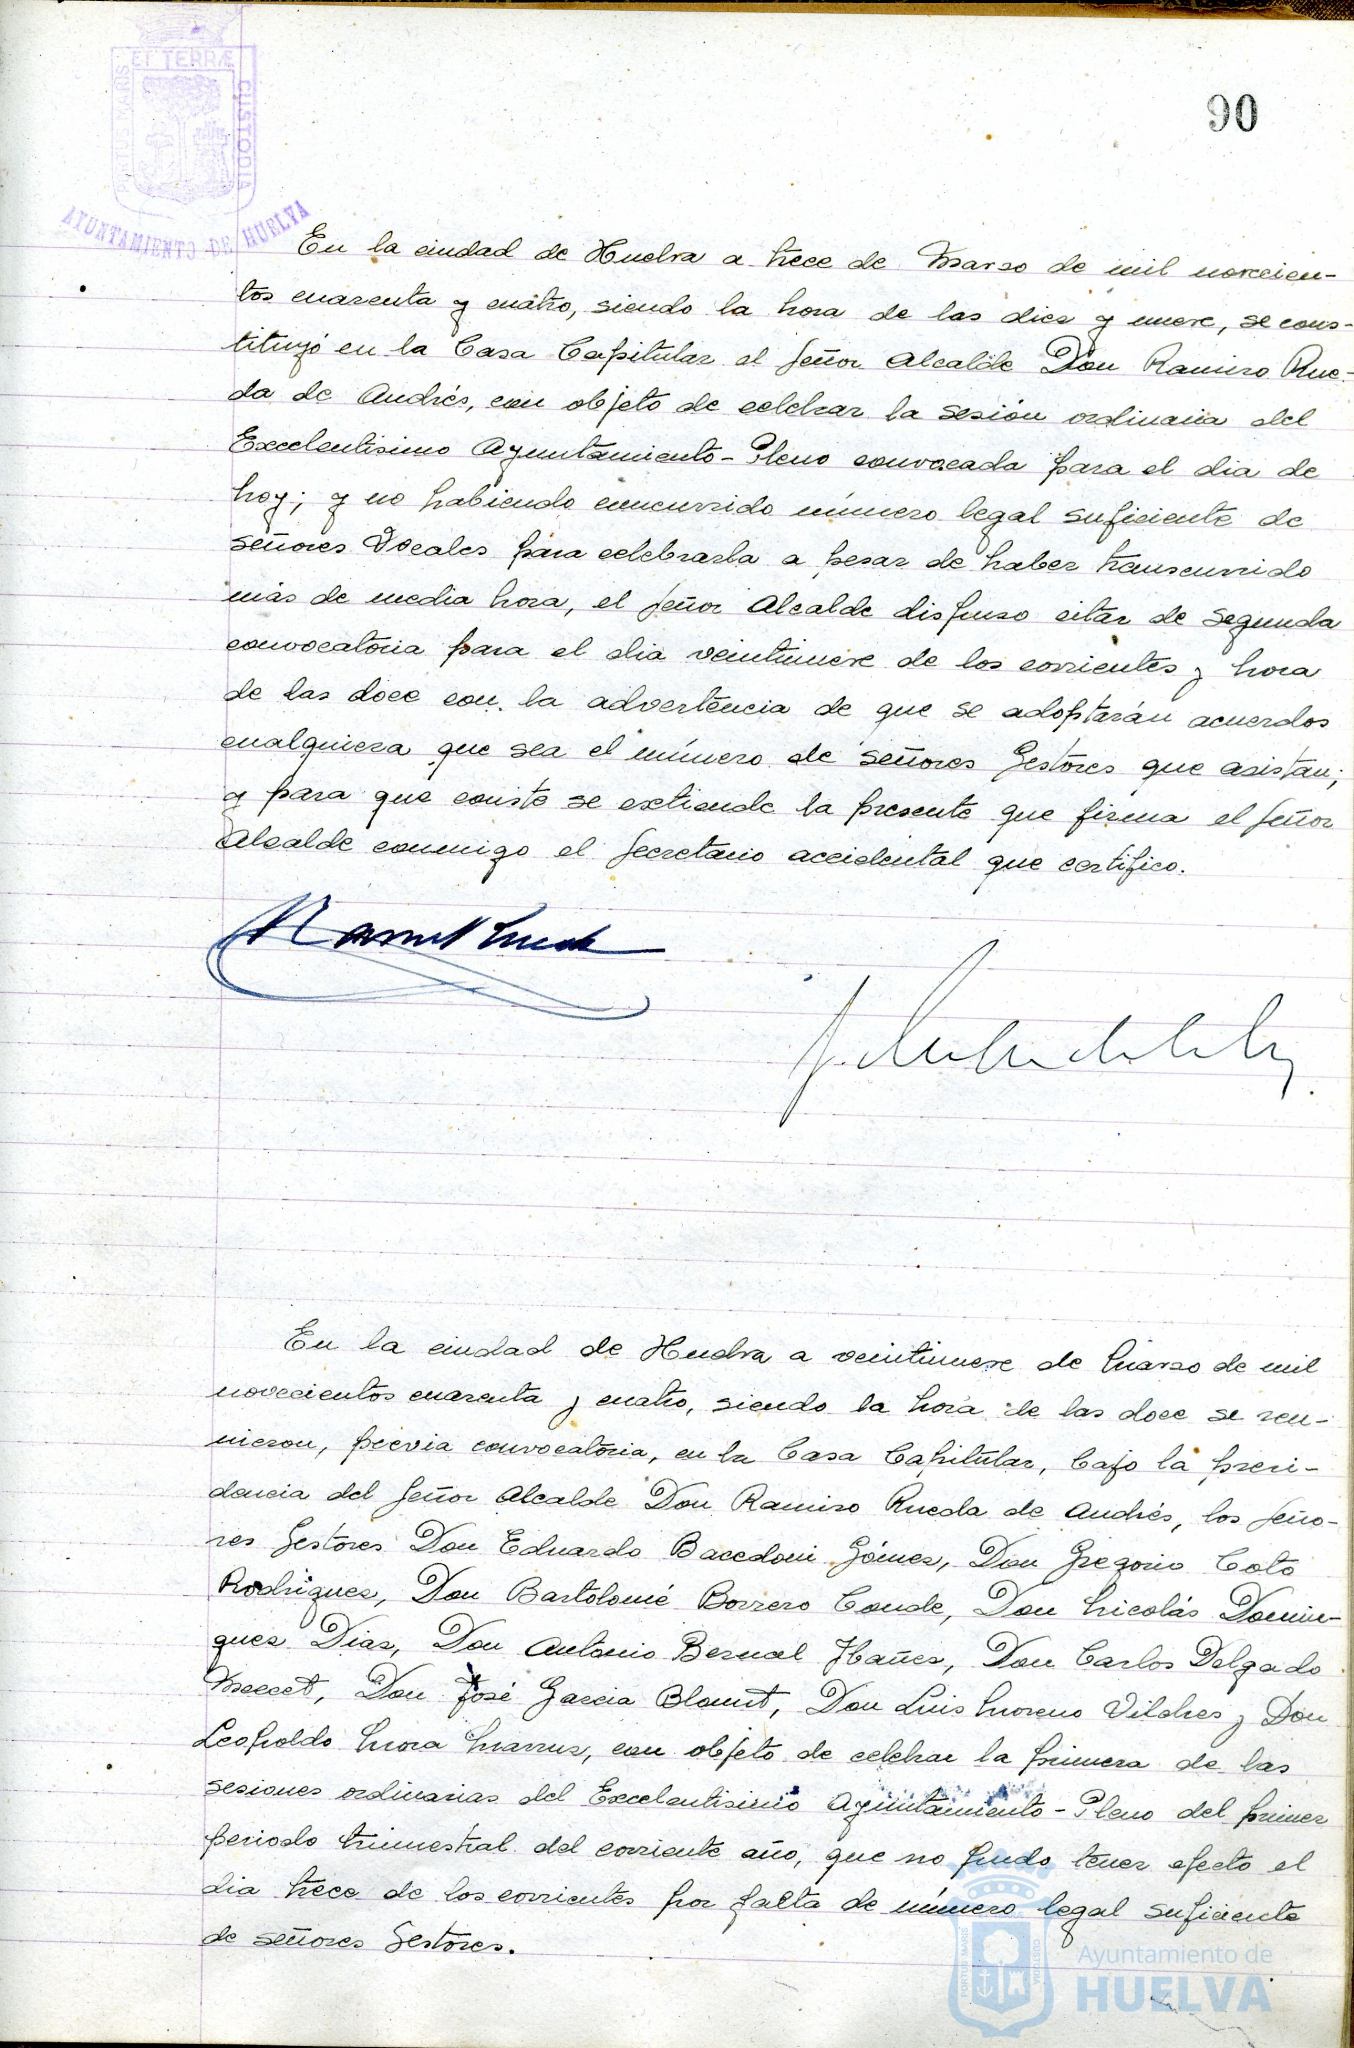 ET TERRÆ
PORTUS MARIS
CUSTODIA
AYUNTAMIENTO DE HUELVA
90
En la ciudad de Huelva a trece de Marzo de mil novecien-
tos cuarenta y cuatro, siendo la hora de las diez y nueve, se cons-
tituyó en la Casa Capitular el Señor Alcalde Don Ramiro Rue-
da de Andrés, con objeto de celebrar la sesión ordinaria del
Excelentisimo Ayuntamiento-Pleno convocada para el dia de
hoy; y no habiendo concurrido número legal suficiente de
señores Vocales para celebrarla a pesar de haber transcurrido
más de media hora, el Señor Alcalde dispuso citar de segunda
convocatoria para el dia veintinueve de los corrientes y hora
de las doce con la advertencia de que se adoptarán acuerdos
cualquiera que sea el número de señores Gestores que asistan;
y para que conste se extiende la presente que firma el Señor
Alcalde conmigo el Secretario accidental que certifico.
En la ciudad de Huelva a veintinueve de Marzo de mil
novecientos cuarenta y cuatro, siendo la hora de las doce se reu-
nieron, previa convocatoria, en la Casa Capitular, bajo la presi-
dencia del Señor Alcalde Don Ramiro Rueda de Andrés, los Seño-
res Gestores Don Eduardo Bacedoni Gómez, Don Gregorio Coto
Rodriguez, Don Bartolomé Borrero Conde, Don Nicolás Domin-
guez Diaz, Don Antonio Bernal Ibañez, Don Carlos Delgado
Don José Garcia Blount, Don Luis Moreno Vilches y Don
Leopoldo Mora con objeto de celebrar la primera de las
sesiones ordinarias del Excelentisimo Ayuntamiento-Pleno del primer
periodo trimestral del corriente año, que no pudo tener efecto el
dia trece de los corrientes por falta de número legal suficiente
de señores Gestores.
PORTUS MARIS
CUSTODIA
Ayuntamiento de
HUELVA